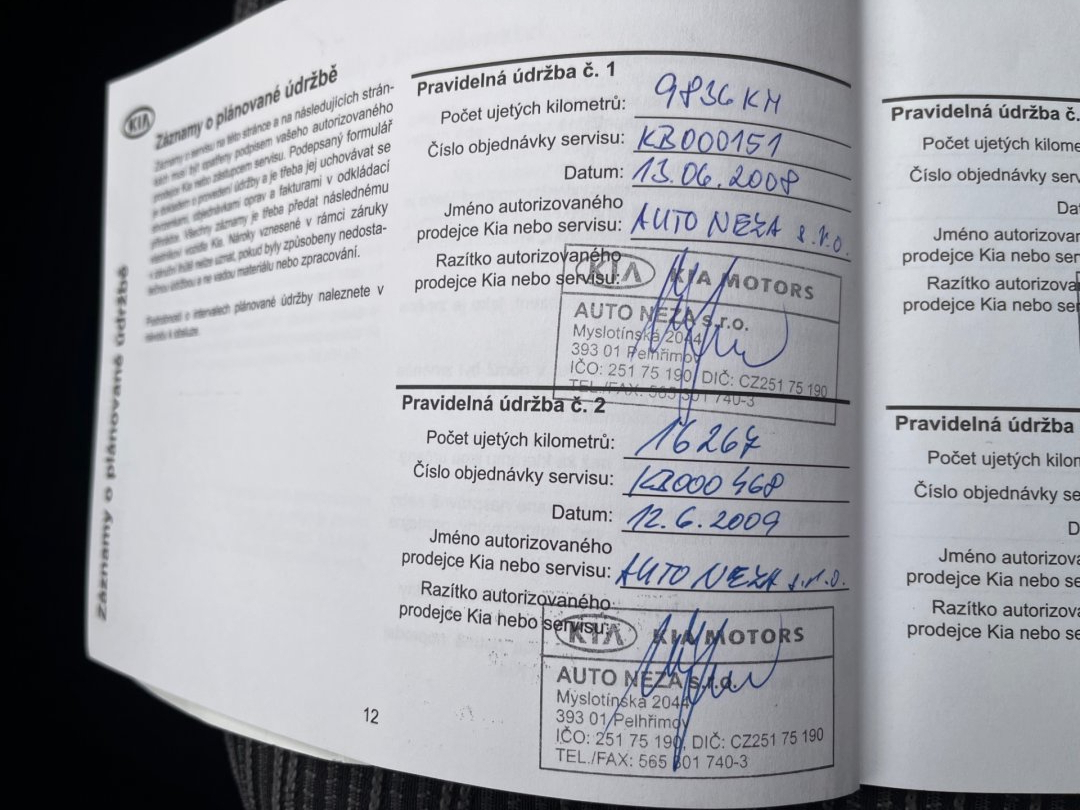 Záznamy o plánované údržbě
KIA
Záznamy o plánované údržbě
Záznamy o servisu na této stránce a na následujících strán-
kách musí být opatřeny podpisem vašeho autorizovaného
prodejce Kia nebo zástupcem servisu. Podepsaný formulář
je dokladem o provedení údržby a je třeba jej uchovávat se
stvrzenkami, objednávkami oprav a fakturami v odkládací
přihrádce. Všechny záznamy je třeba předat následnému
vlastníkovi vozidla Kia. Nároky vznesené v rámci záruky
v záruční lhůtě nelze uznat, pokud byly způsobeny nedosta-
tečnou údržbou a ne vadou materiálu nebo zpracování.
Podrobnosti o intervalech plánované údržby naleznete v
návodu k obsluze.
Pravidelná údržba č. 1
Počet ujetých kilometrů: 9836 KM
Číslo objednávky servisu: KB000151
Datum: 13.06.2008
Jméno autorizovaného
prodejce Kia nebo servisu: AUTO NEZA s.r.o.
Razítko autorizovaného
prodejce Kia nebo servisu:
KIA KIA MOTORS
AUTO NEZA s.r.o.
Myslotínská 2044
393 01 Pelhřimov
IČO: 251 75 190, DIČ: CZ251 75 190
TEL./FAX: 565 301 740-3
Pravidelná údržba č. 2
Počet ujetých kilometrů: 16267
Číslo objednávky servisu: KB000468
Datum: 12.6.2009
Jméno autorizovaného
prodejce Kia nebo servisu: AUTO NEZA s.r.o.
Razítko autorizovaného
prodejce Kia nebo servisu:
KIA KIA MOTORS
AUTO NEZA s.r.o.
Myslotínská 2044
393 01 Pelhřimov
IČO: 251 75 190, DIČ: CZ251 75 190
TEL./FAX: 565 301 740-3
12
Pravidelná údržba č.
Počet ujetých kilome
Číslo objednávky serv
Dat
Jméno autorizovan
prodejce Kia nebo ser
Razítko autorizova
prodejce Kia nebo se
Pravidelná údržba
Počet ujetých kilom
Číslo objednávky se
D
Jméno autorizova
prodejce Kia nebo se
Razítko autorizova
prodejce Kia nebo se